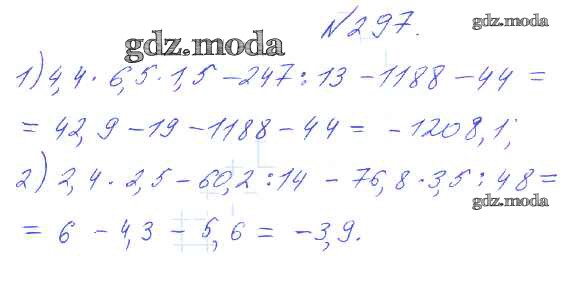 №297.
gdz.moda
gdz.moda
1) 4,4 · 6,5 · 1,5 – 247 : 13 – 1188 – 44 =
= 42,9 – 19 – 1188 – 44 = – 1208,1;
2) 2,4 · 2,5 – 60,2 : 14 – 76,8 · 3,5 : 48 =
gdz.moda
= 6 – 4,3 – 5,6 = – 3,9.